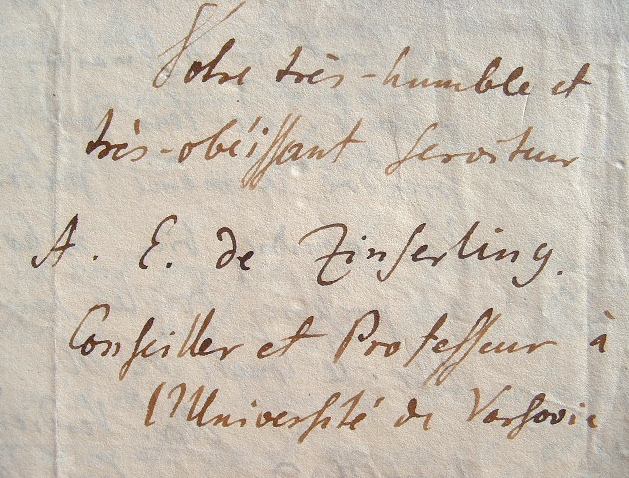 Votre très-humble et
très-obéissant serviteur
A. E. de Zinserling.
Conseiller et Professeur à
l'Université de Varsovie